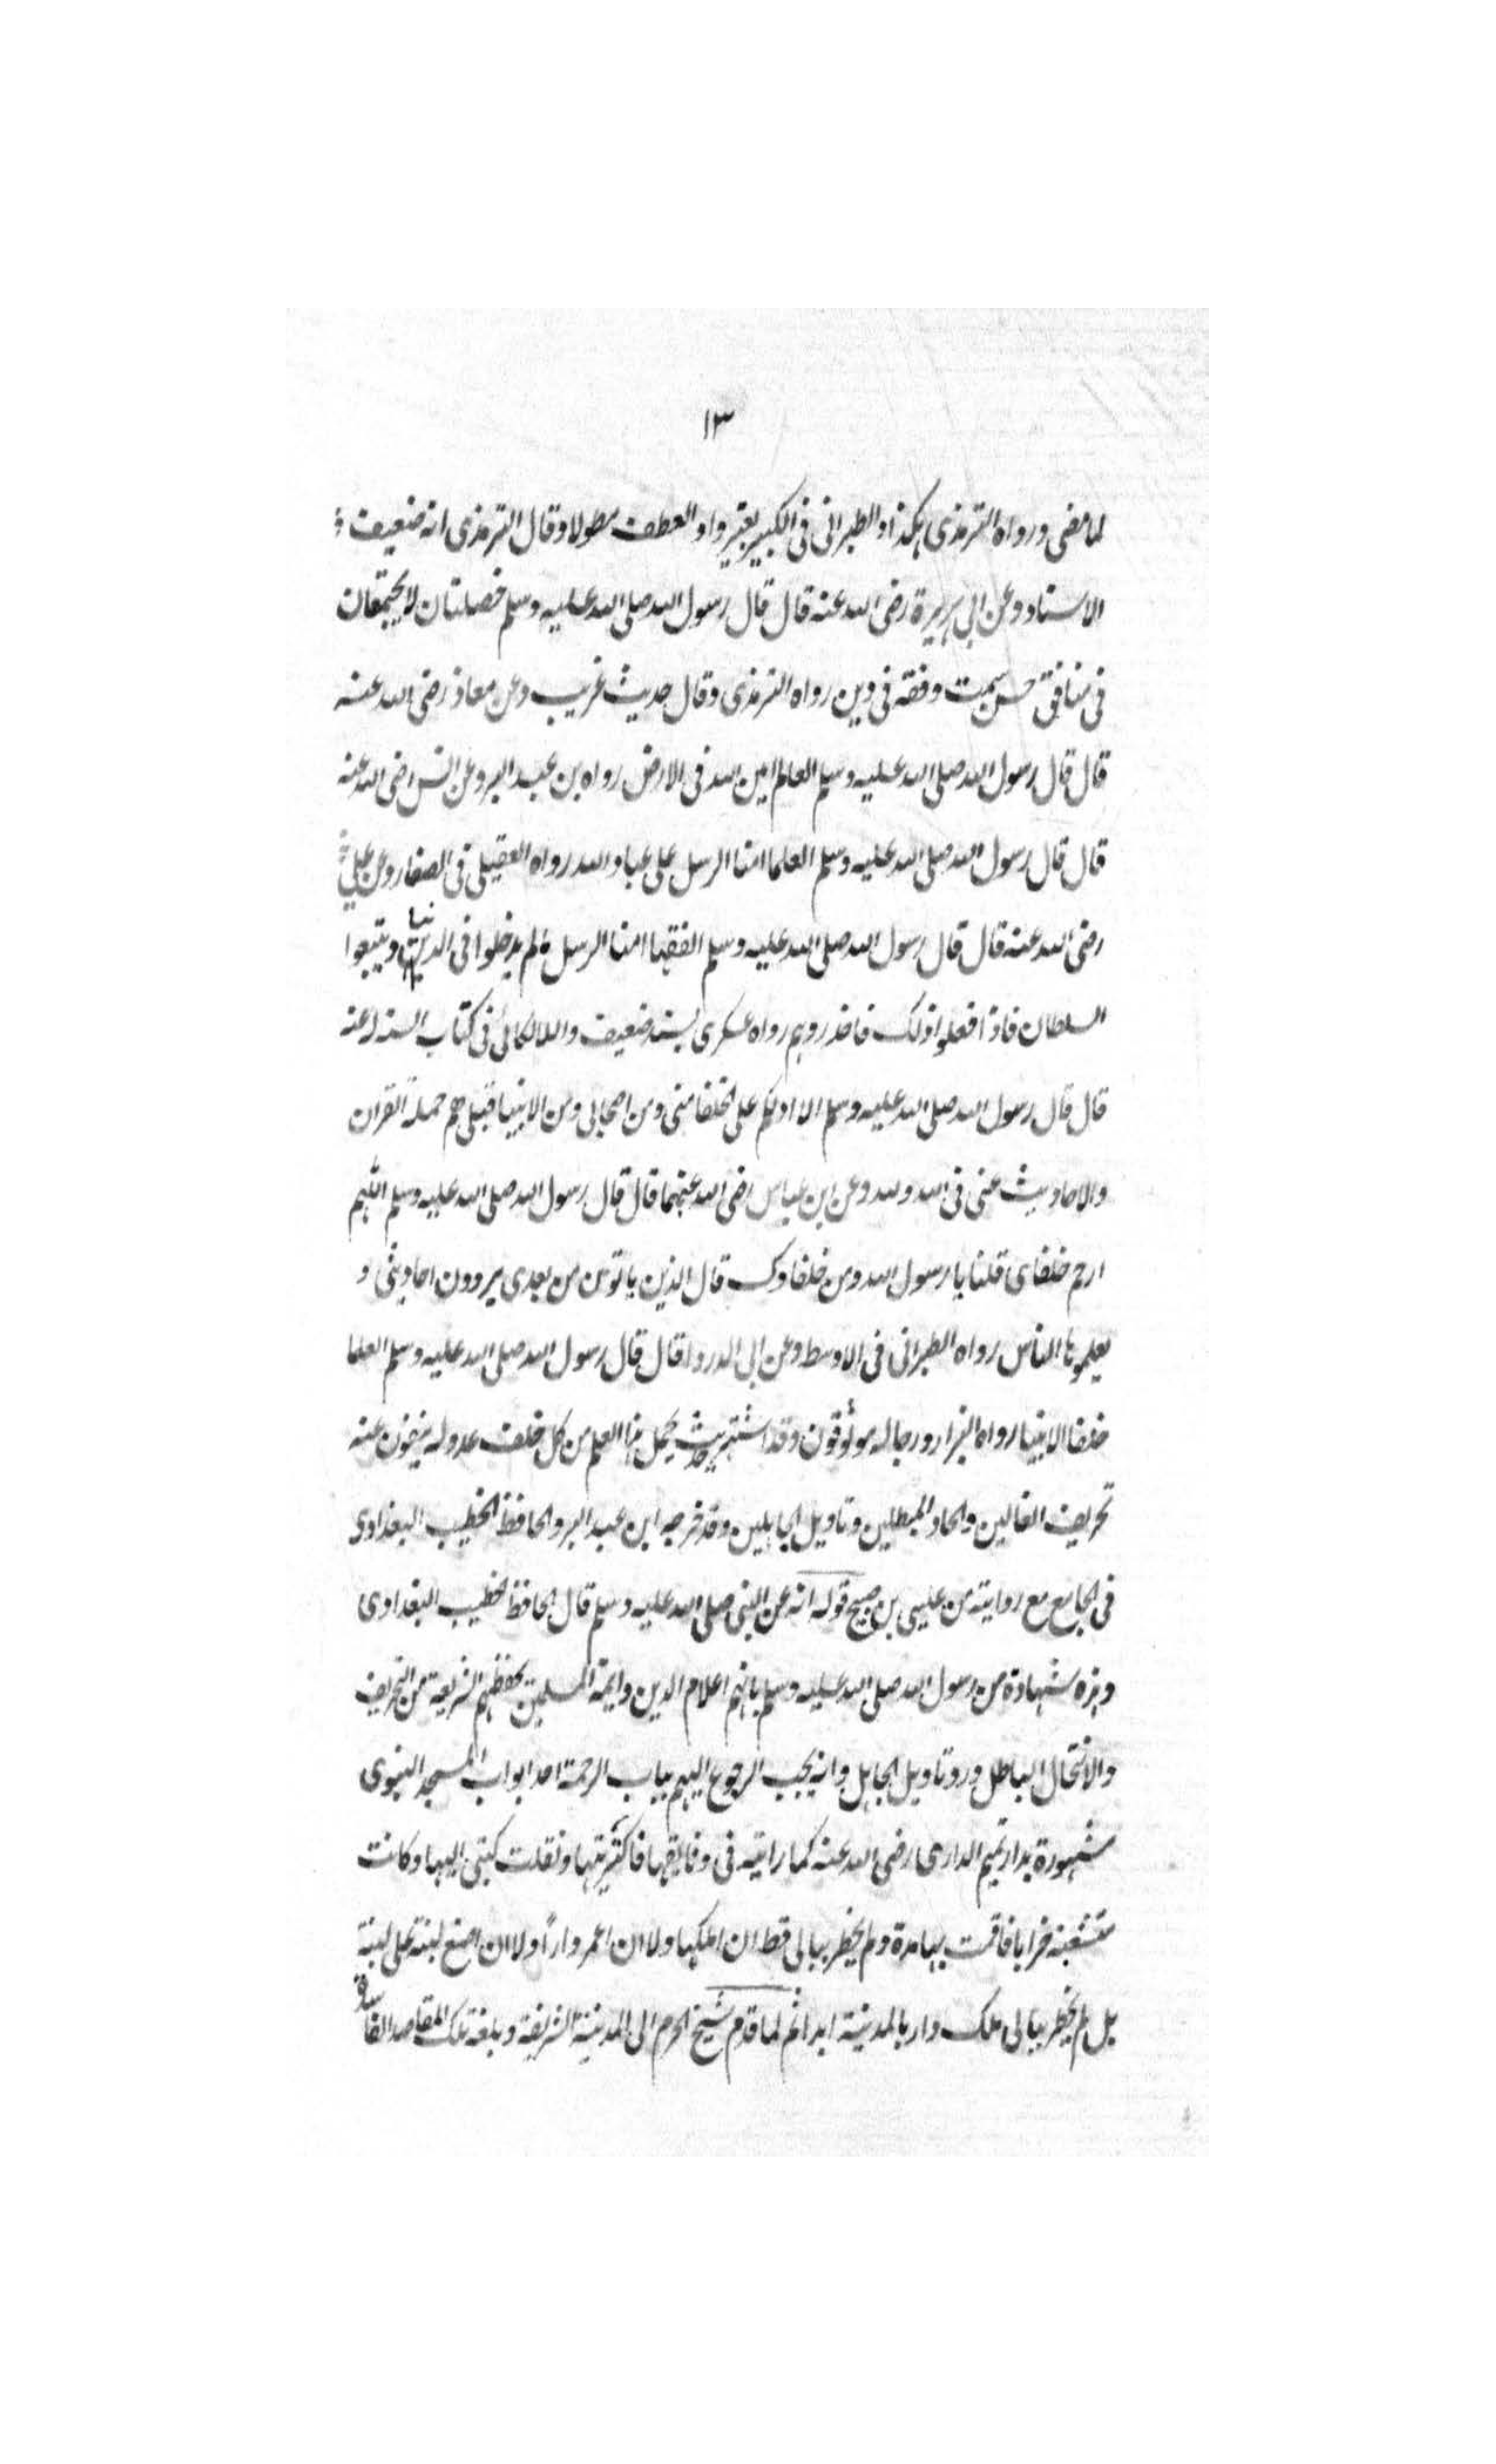 ١٣
لما مضى ورواه الترمذى هكذا والطبرانى فى الكبير بغير واو العطف مطولا وقال الترمذى انه ضعيف
الاسناد وعن ابى هريرة رضى الله عنه قال قال رسول الله صلى الله عليه وسلم خصلتان لا يجتمعان
فى منافق حسن سمت وفقه فى دين رواه الترمذى وقال حديث غريب وعن معاذ رضى الله عنه
قال قال رسول الله صلى الله عليه وسلم العالم امين الله فى الارض رواه بن عبد البر وعن انس رضى الله عنه
قال قال رسول الله صلى الله عليه وسلم العلما امنا الرسل على عباد الله رواه العقيلى فى الضعفا وعن على
رضى الله عنه قال قال رسول الله صلى الله عليه وسلم الفقها امنا الرسل ما لم يدخلوا فى الدنيا ويتبعوا
السلطان فاذا فعلوا ذلك فاحذروهم رواه عسكرى بسند ضعيف واللالكائى فى كتاب السنة عنه
قال قال رسول الله صلى الله عليه وسلم الا ادلكم على الخلفا منى ومن اصحابى ومن الانبيا قبلى هم حملة القران
والاحاديث عنى فى الله ولله وعن ابن عباس رضى الله عنهما قال قال رسول الله صلى الله عليه وسلم اللهم
ارحم خلفاى قلنا يا رسول الله ومن خلفاوك قال الذين ياتون من بعدى يروون احاديثى و
يعلمونها الناس رواه الطبرانى فى الاوسط وعن ابى الدردا قال قال رسول الله صلى الله عليه وسلم العلما
خلفا الانبيا رواه البزار ورجاله موثوقون وقد اشتهر حديث يحمل هذا العلم من كل خلف عدوله ينفون عنه
تحريف الغالين والحاد المبطلين وتاويل الجاهلين وقد خرجه ابن عبد البر والحافظ الخطيب البغدادى
فى الجامع مع روايته من عيسى بن صبيح قوله انه عن النبى صلى الله عليه وسلم قال الحافظ الخطيب البغدادى
وهذه شهادة من رسول الله صلى الله عليه وسلم بانهم اعلام الدين وايمة المسلمين بحفظهم الشريعة من التحريف
والانتحال الباطل ورد تاويل الجاهل وانه يجب الرجوع اليهم بباب الرحمة احد ابواب المسجد النبوى
مشهورة بدار تميم الدارى رضى الله عنه كما رايته فى وقايعها فاكتريتها ونقلت كتبى اليها وكانت
متشعبة خرابا فاقمت بها مدة ولم يخطر ببالى قط ان املكها ولا ان اعمر دارا ولا ان اضع لبنة على لبنة
بل لم يخطر ببالى ملك دار بالمدينة ابدا ثم لما قدم شيخ الحرم الى المدينة الشريفة وبلغه تلك المقاصد الفاسدة